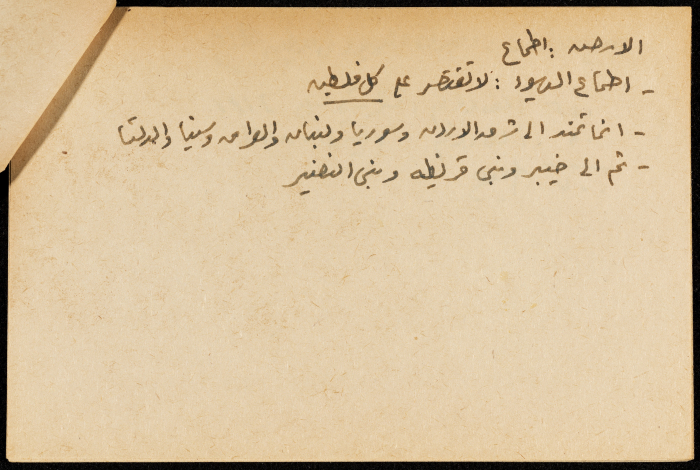 الارض : اطماع
- اطماع اليهود : لا تقتصر على كل فلسطين
- انما تمتد الى شرق الاردن وسوريا ولبنان والعراق وسينا والدلتا
- ثم الى خيبر وبني قريظه وبني النضير